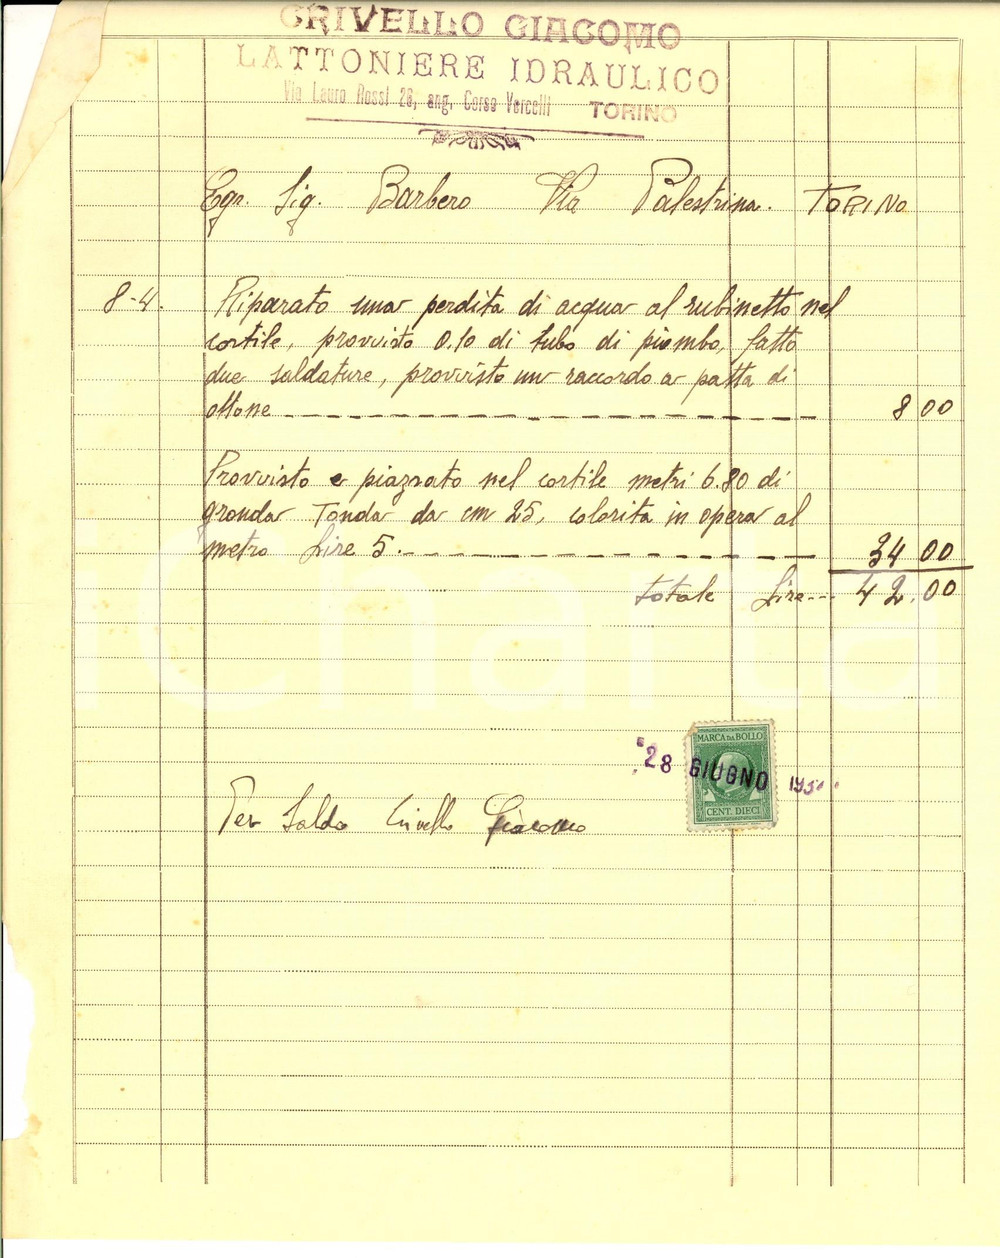 CRIVELLO GIACOMO
LATTONIERE IDRAULICO
Via Lauro Rossi 26, ang. Corso Vercelli TORINO
Egr. Sig. Barbero Via Palestrina. TORINO
8-4. Riparato una perdita di acqua al rubinetto nel
cortile, provvisto 0,10 di tubo di piombo, fatto
due saldature, provvisto un raccordo a patta di
ottone 8 00
Provvisto e piazzato nel cortile metri 6.80 di
gronda Tonda da cm 25, colorita in opera al
metro Lire 5. 34 00
Totale Lire 42.00
MARCA DA BOLLO
28 GIUGNO
CENT. DIECI
Per Saldo Crivello Giacomo
iCharta